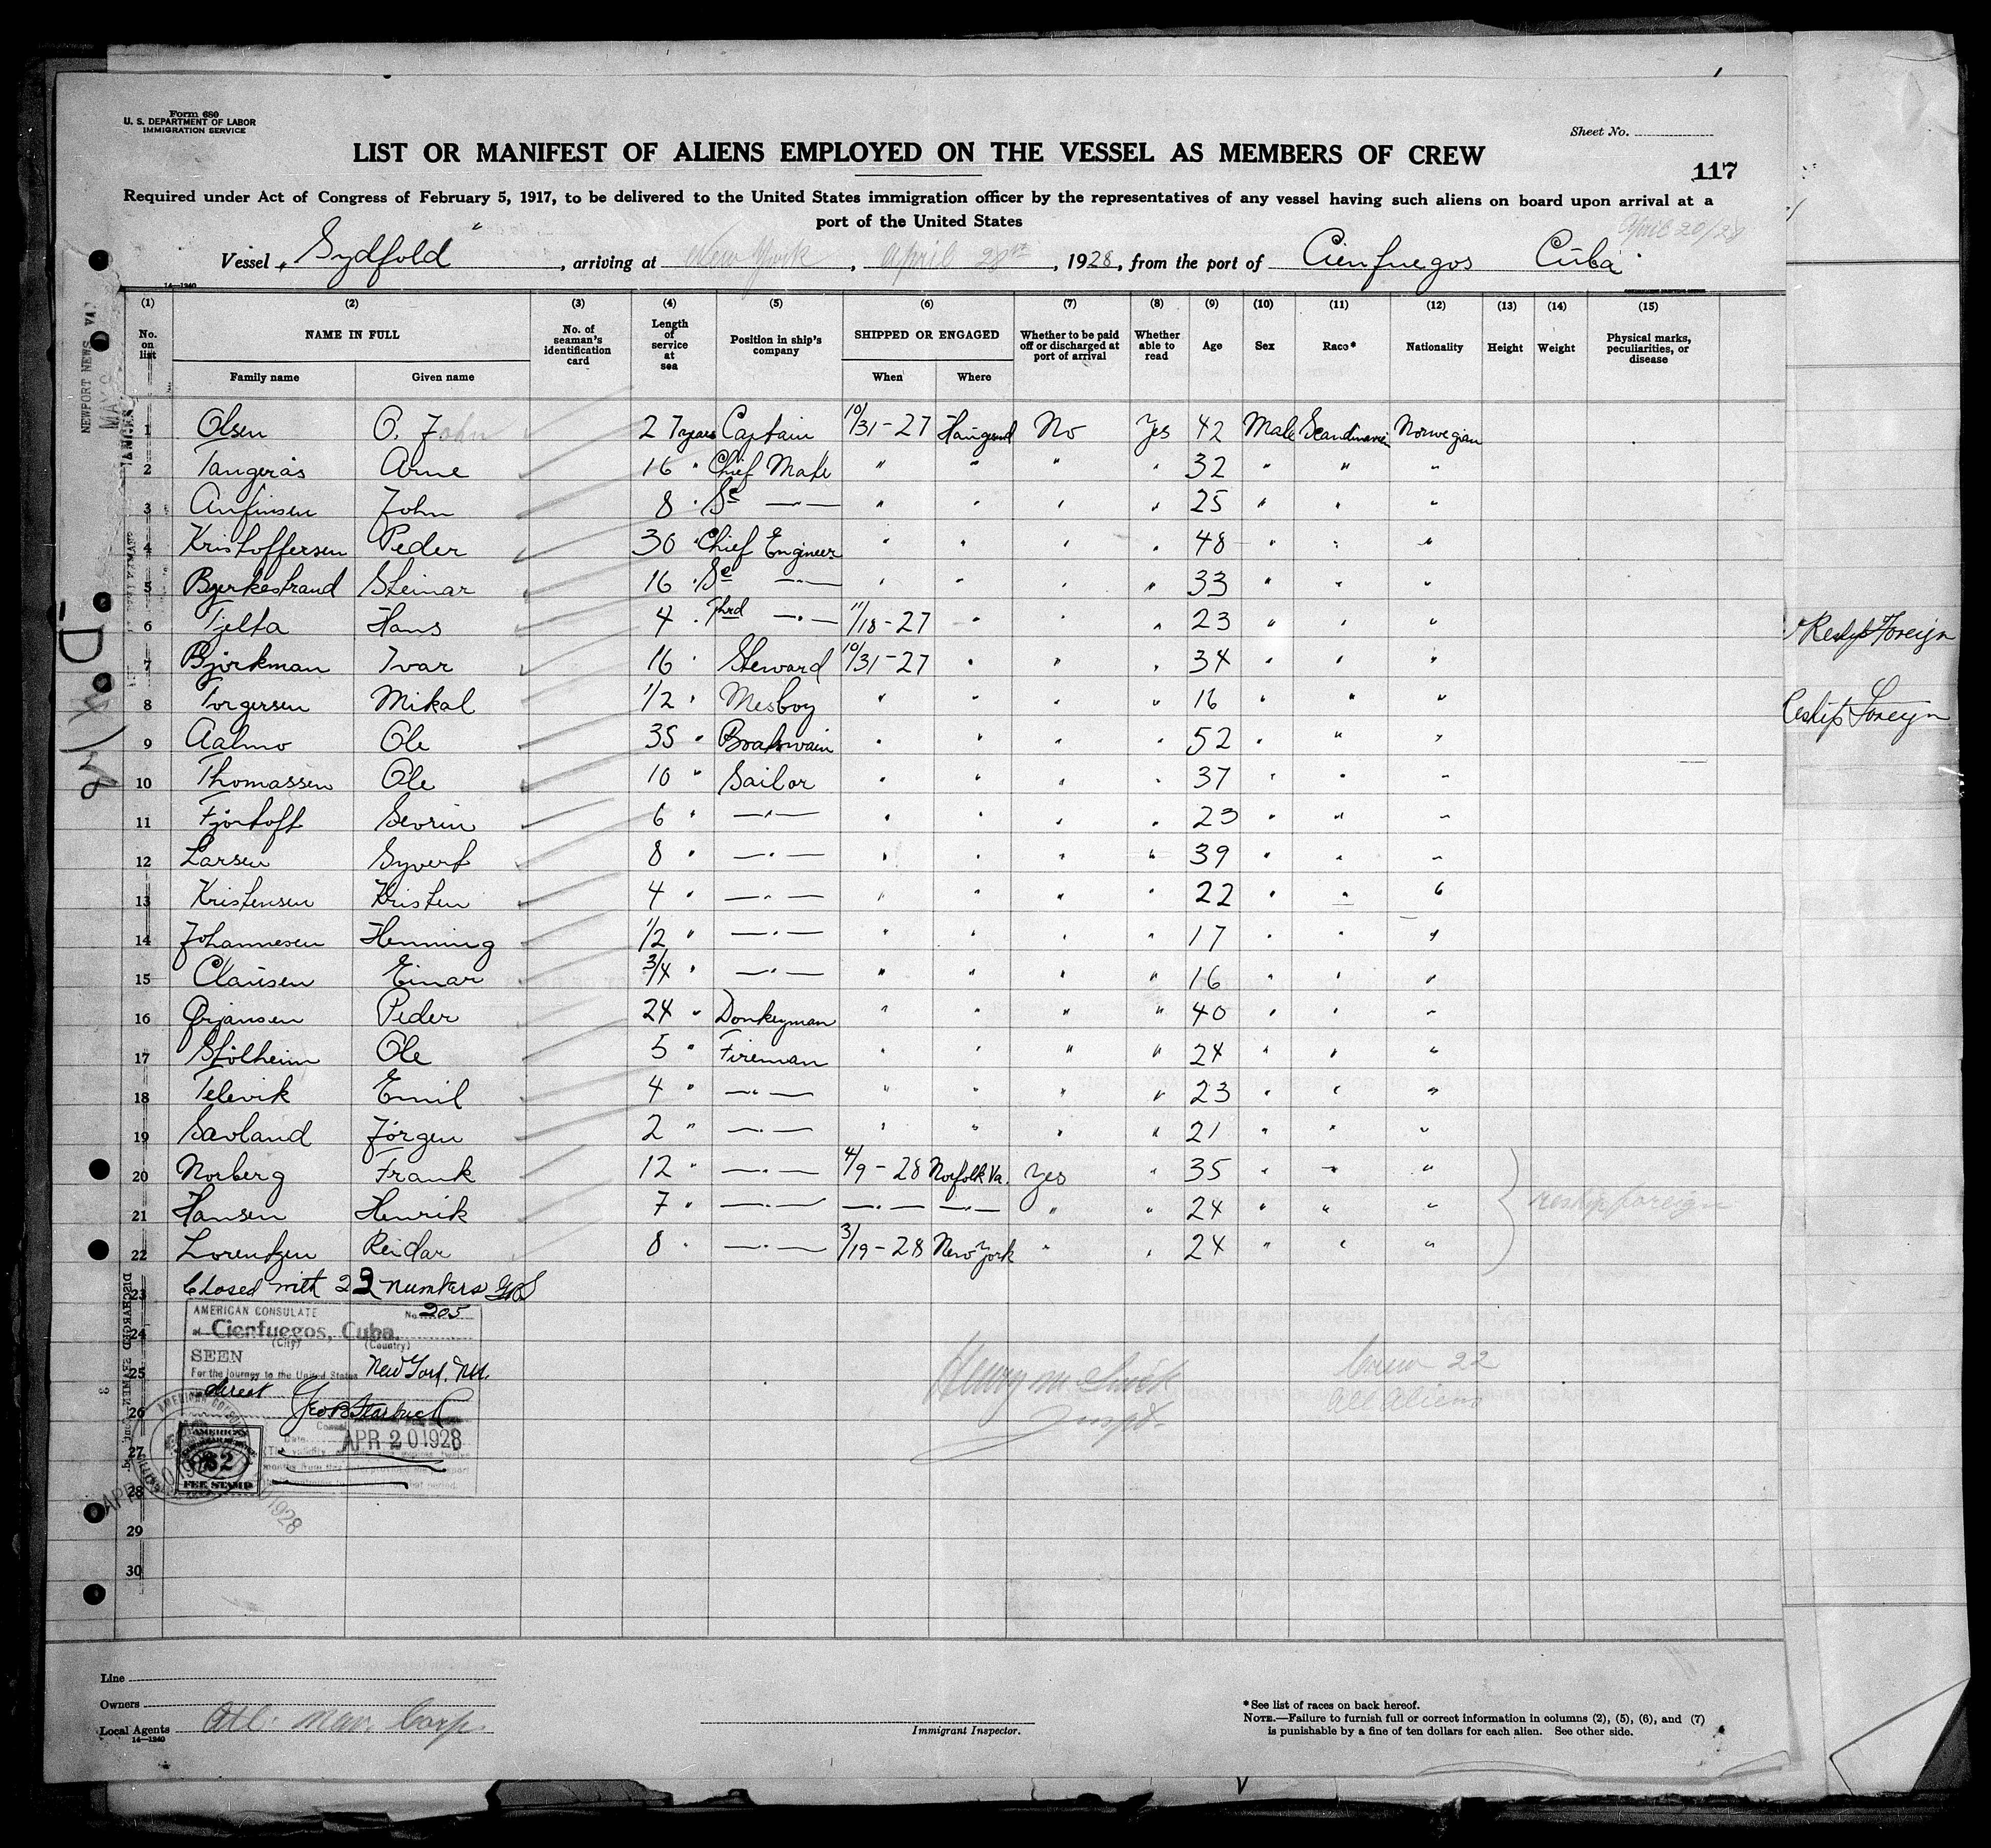 Form 680
U. S. DEPARTMENT OF LABOR
IMMIGRATION SERVICE
Sheet No.
LIST OR MANIFEST OF ALIENS EMPLOYED ON THE VESSEL AS MEMBERS OF CREW
117
Required under Act of Congress of February 5, 1917, to be delivered to the United States immigration officer by the representatives of any vessel having such aliens on board upon arrival at a
port of the United States
April 20/28
Vessel "Sydfold", arriving at New York, April 28th, 1928, from the port of Cienfuegos Cuba
14—1240
(1) (2) (3) (4) (5) (6) (7) (8) (9) (10) (11) (12) (13) (14) (15)
No. on list NAME IN FULL No. of seaman's identification card Length of service at sea Position in ship's company SHIPPED OR ENGAGED Whether to be paid off or discharged at port of arrival Whether able to read Age Sex Race* Nationality Height Weight Physical marks, peculiarities, or disease
Family name Given name When Where
1 Olsen O. John 27 years Captain 10/31-27 Haugesund No Yes 42 Male Scandinavien Norwegian
2 Tangerås Arne 16 " Chief Mate " " " " 32 " " "
3 Anfinsen John 8 " Sc —"— " " " " 25 " " "
4 Kristoffersen Peder 30 " Chief Engineer " " " " 48 " " "
5 Bjerkestrand Steinar 16 " Sc —"— " " " " 33 " " "
6 Tjelta Hans 4 " Thrd —"— 11/18-27 " " " 23 " " "
7 Björkman Ivar 16 " Steward 10/31-27 " " " 34 " " "
8 Torgersen Mikal 1/2 " Mesboy " " " " 16 " " "
9 Aalmo Ole 35 " Boatswain " " " " 52 " " "
10 Thomassen Ole 10 " Sailor " " " " 37 " " "
11 Fjörtoft Sevrin 6 " —"— " " " " 23 " " "
12 Larsen Syvert 8 " —"— " " " " 39 " " "
13 Kristensen Kristen 4 " —"— " " " " 22 " " "
14 Johannesen Henning 1/2 " —"— " " " " 17 " " "
15 Clausen Einar 3/4 " —"— " " " " 16 " " "
16 Ørjansen Peder 24 " Donkeyman " " " " 40 " " "
17 Stölheim Ole 5 " Fireman " " " " 24 " " "
18 Televik Emil 4 " —"— " " " " 23 " " "
19 Savland Jörgen 2 " —"— " " " " 21 " " "
20 Norberg Frank 12 " —"— 4/9-28 Norfolk Va. Yes " 35 " " "
21 Hansen Henrik 7 " —"— —"— —"— " " 24 " " " reship foreign
22 Lorentzen Reidar 8 " —"— 3/19-28 New York " " 24 " " "
23 Closed with 22 numbers
24
25
26
27
28
29
30
AMERICAN CONSULATE
No. 205
at Cienfuegos, Cuba.
(City) (Country)
SEEN
For the journey to the United States New York, N.Y.
direct
Geo B Starbuck
Date APR 20 1928
AMERICAN
$2
FEE STAMP
Henry M
Inspt.
Crew 22
All Aliens
Reship Foreign
Reship Foreign
NEWPORT NEWS, VA.
Line
Owners
Local Agents Atl. Mar. Corp.
14—1240
Immigrant Inspector.
*See list of races on back hereof.
NOTE.—Failure to furnish full or correct information in columns (2), (5), (6), and (7)
is punishable by a fine of ten dollars for each alien. See other side.